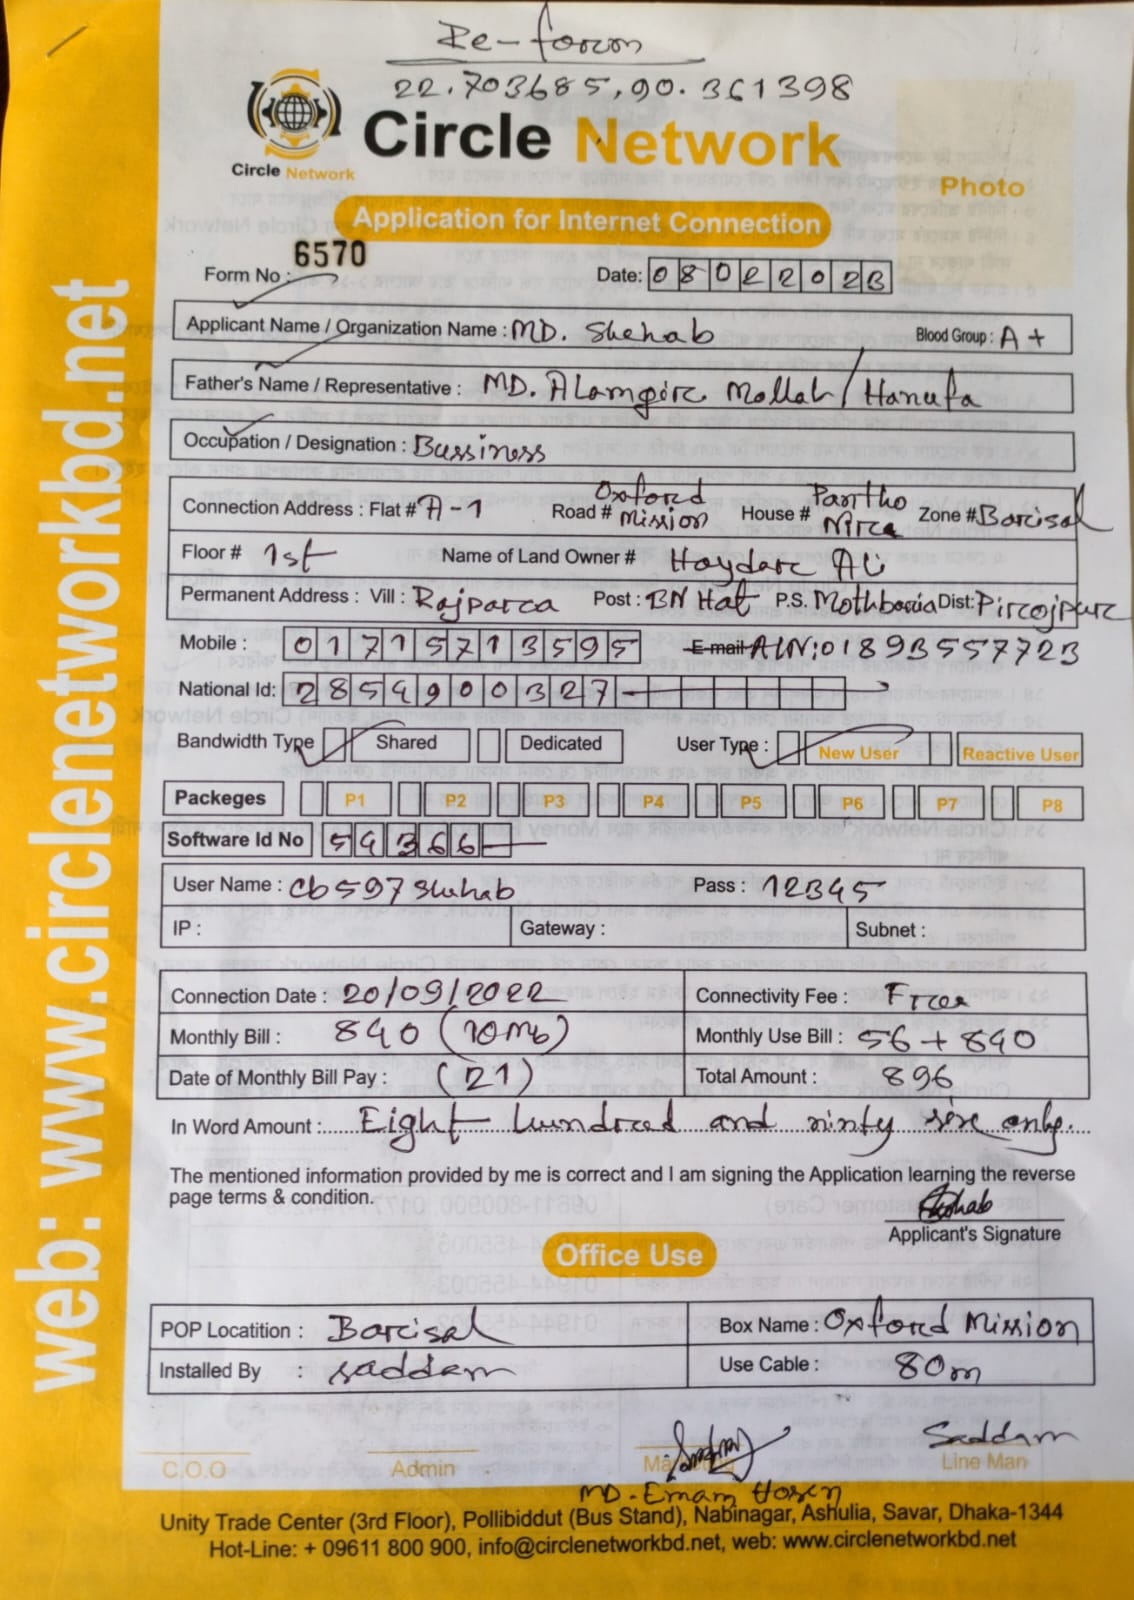 Re-form
22.703685,90.361398
Circle Network
Circle Network
Photo
Application for Internet Connection
Form No : 6570 Date: 08022023
Applicant Name / Organization Name : MD. Shehab Blood Group : A+
Father's Name / Representative : MD. Alamgir Mollah / Hanufa
Occupation / Designation : Bussiness
Connection Address : Flat # A-1 Road # Oxford Mission House # Partho Nirca Zone # Barisal
Floor # 1st Name of Land Owner # Haydar Ali
Permanent Address : Vill : Rajpara Post : BN Hat P.S. Mothbaria Dist: Pirojpur
Mobile : 01715713595 E-mail ALN: 01893557723
National Id: 2854900327-
Bandwidth Type Shared Dedicated User Type : New User Reactive User
Packeges P1 P2 P3 P4 P5 P6 P7 P8
Software Id No 54366
User Name : cb597shehab Pass : 12345
IP : Gateway : Subnet :
Connection Date : 20/09/2022 Connectivity Fee : Free
Monthly Bill : 840 (10Mb) Monthly Use Bill : 56 + 840
Date of Monthly Bill Pay : (21) Total Amount : 896
In Word Amount : Eight hundred and ninty six only.
The mentioned information provided by me is correct and I am signing the Application learning the reverse
page terms & condition.
Shehab
Applicant's Signature
Office Use
POP Locatition : Barisal Box Name : Oxford Mission
Installed By : saddam Use Cable : 80m
Saddam
C.O.O Admin Marketing Line Man
MD-Emam Hosen
Unity Trade Center (3rd Floor), Pollibiddut (Bus Stand), Nabinagar, Ashulia, Savar, Dhaka-1344
Hot-Line: + 09611 800 900, info@circlenetworkbd.net, web: www.circlenetworkbd.net
web: www.circlenetworkbd.net